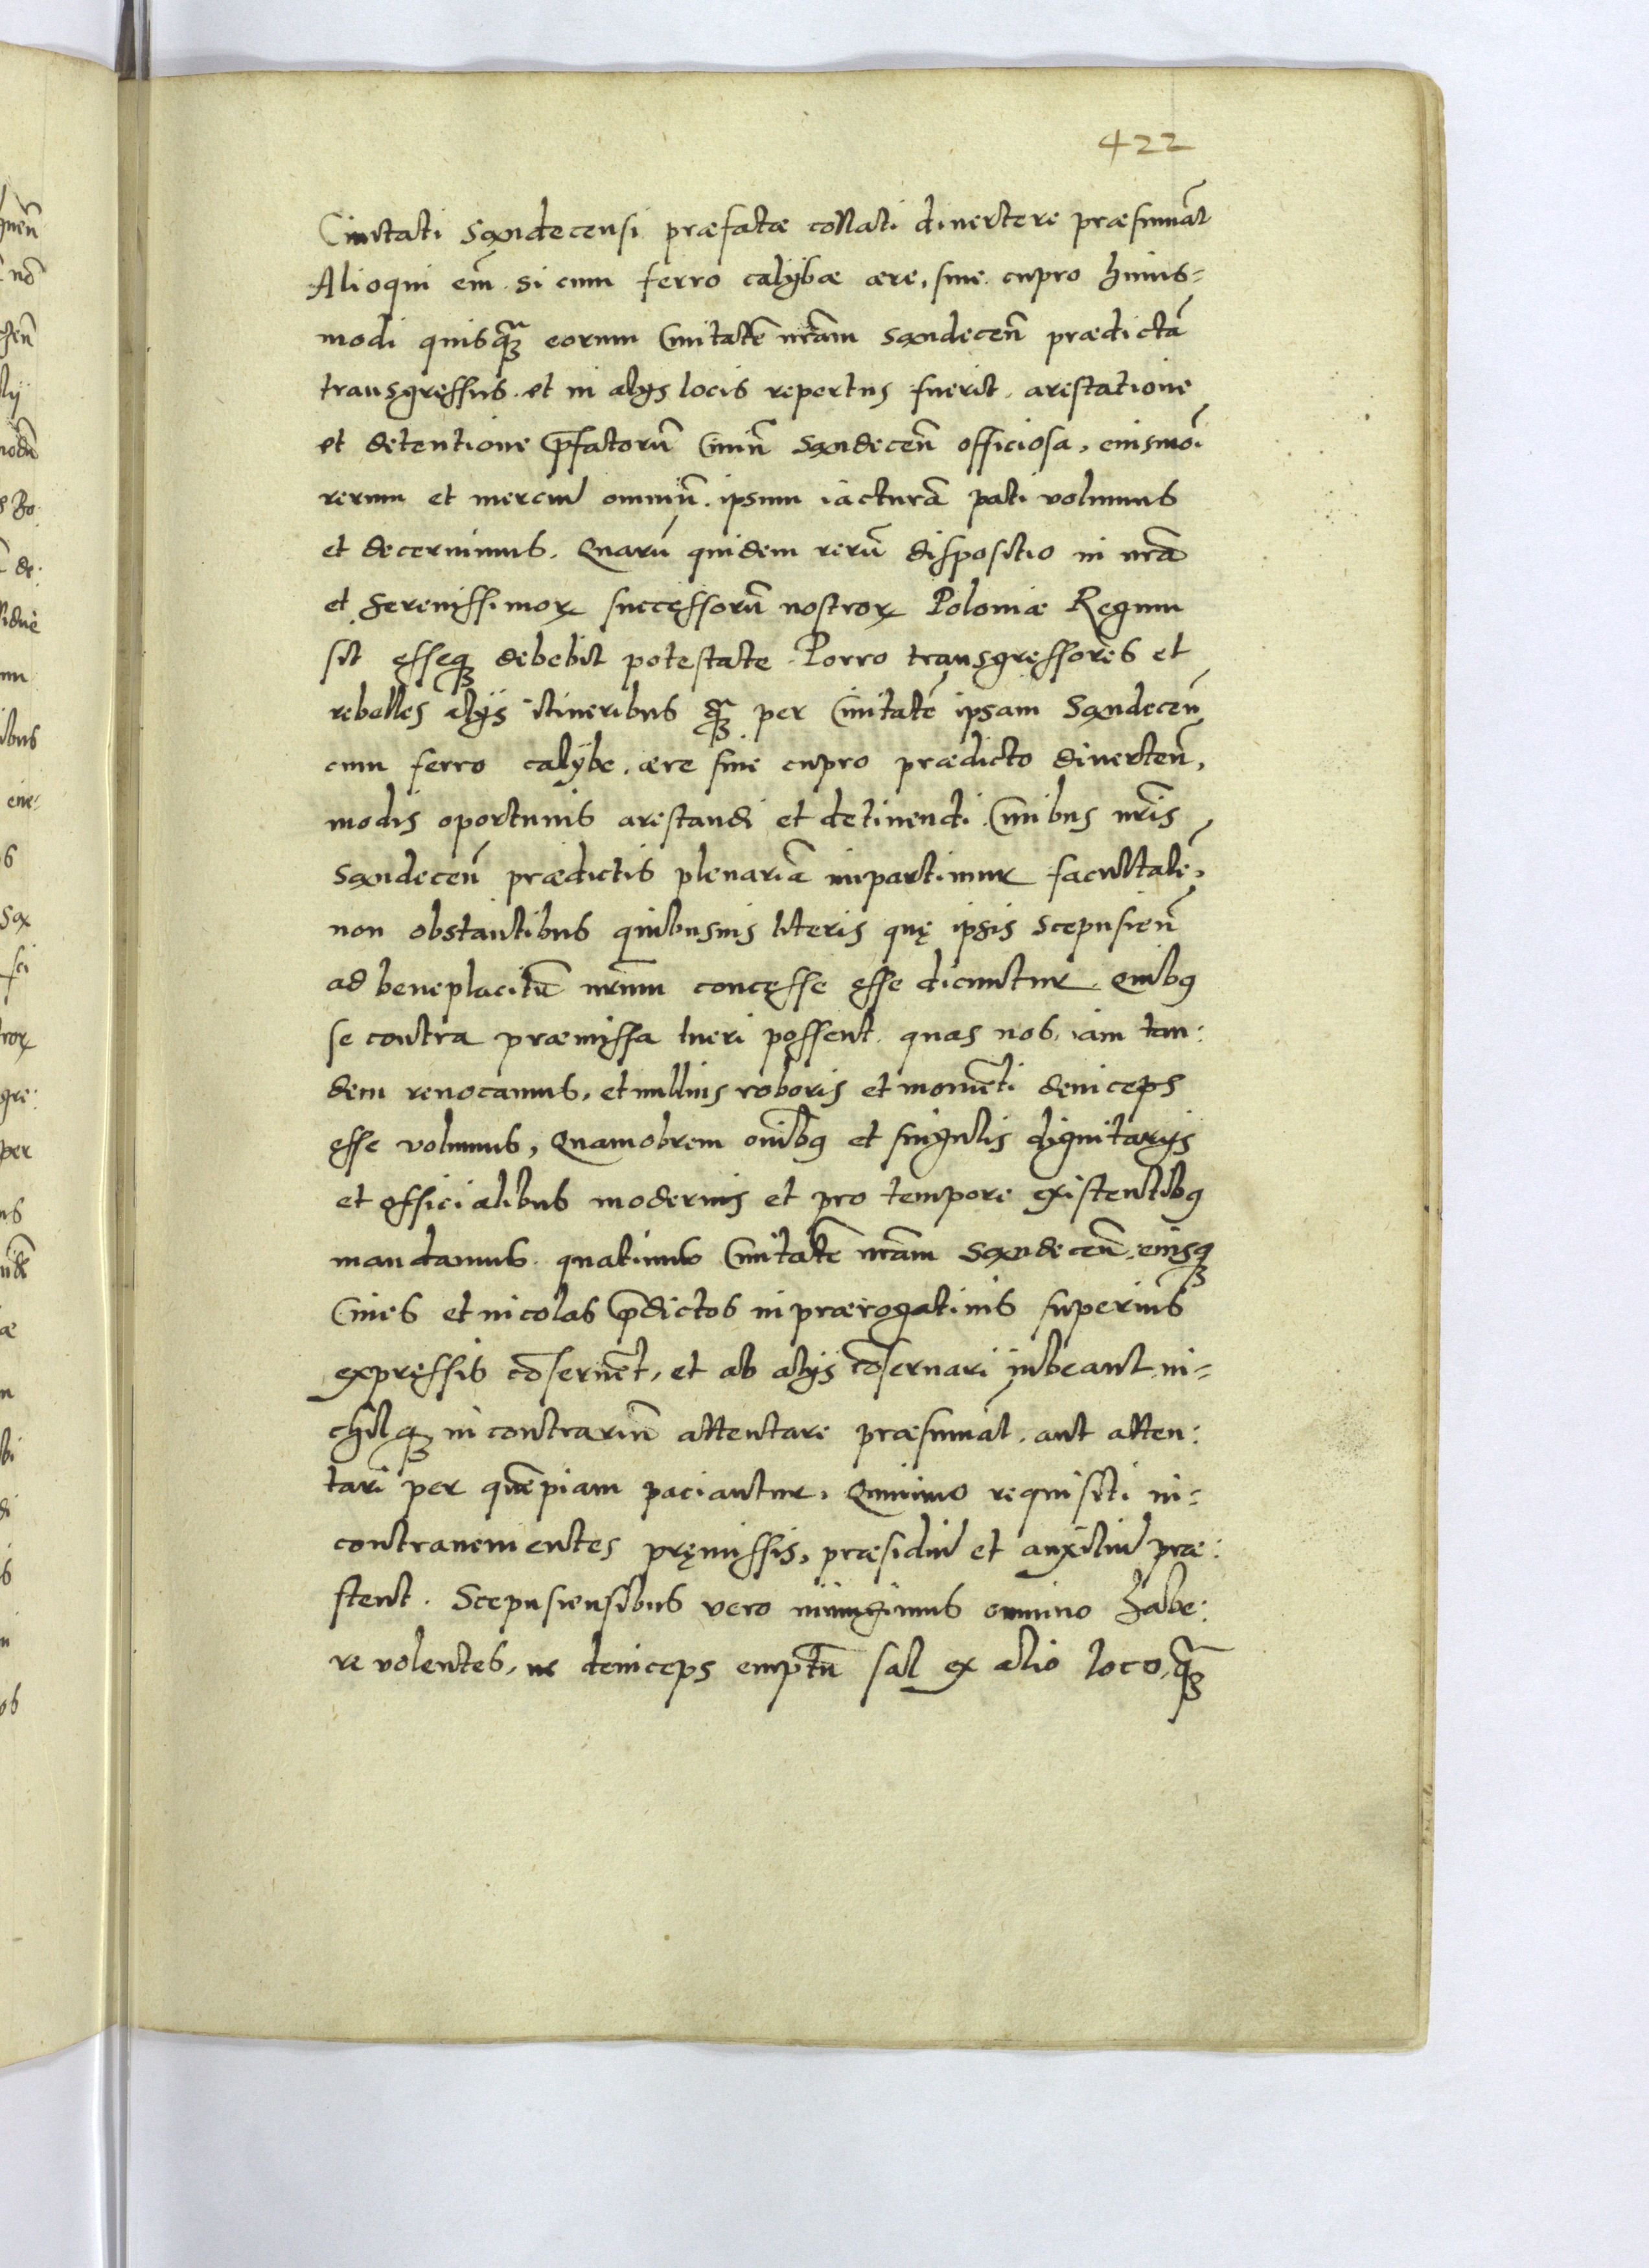 422
Ciuitati Sandecensi præfatæ collati diuertere præsumãt
Alioqui em̃ si cum ferro calÿbæ ære, siue cupro huius=
modi quisq̃ꝫ eorum Ciuitatẽ nr̃am Sandeceñ prædictã
transgressus et in alijs locis repertus fuerit, arestatione
et detentione p̃fatorũ Ciuiũ Sandeceñ officiosa, eiusmõi
rerum et merciũ omniũ ipsum iacturã pati volumus
et decernimus. Quarũ quidem rerũ dispositio in nr̃a
et Serenissimoꝝ successorũ nostroꝝ Poloniæ Regum
sit esseqꝫ debebit potestate. Porro transgressores et
rebelles alijs itineribus q̃ꝫ per Ciuitatẽ ipsam Sandeceñ
cum ferro calÿbe, ære siue cupro prædicto diuerteñ,
modis oportunis arestandi et detinendi Ciuibus nr̃is
Sandeceñ prædictis plenariã impartimur facultatẽ,
non obstantibus quibusuis literis quę ipsis Scepusieñ
ad beneplacitũ nr̃um concesse esse dicuntur. Quibꝯ
se contra præmissa tueri possent, quas nos iam tan:
dem reuocamus, et nullius roboris et momẽti deinceps
esse volumus, Quamobrem om̃ibꝯ et singulis dignitarijs
et officialibus modernis et pro tempore existentibꝯ
mandamus quatinus Ciuitatẽ nr̃am Sandeceñ, eiusqꝫ
Ciues et incolas p̃dictos in prærogatiuis superius
expressis cõseruẽt, et ab alijs cõseruari iubeant, ni=
chilqꝫ in contrariũ attentare præsumãt, aut atten:
tari per quẽpiam paciantur, Quinimo requisiti in=
contrauenientes pręmissis, præsidiũ et auxiliũ præ:
stent. Scepusiensibus vero iniungimus omnino habe:
re volentes, ne deinceps emptũ sal ex alio loco, q̃ꝫ